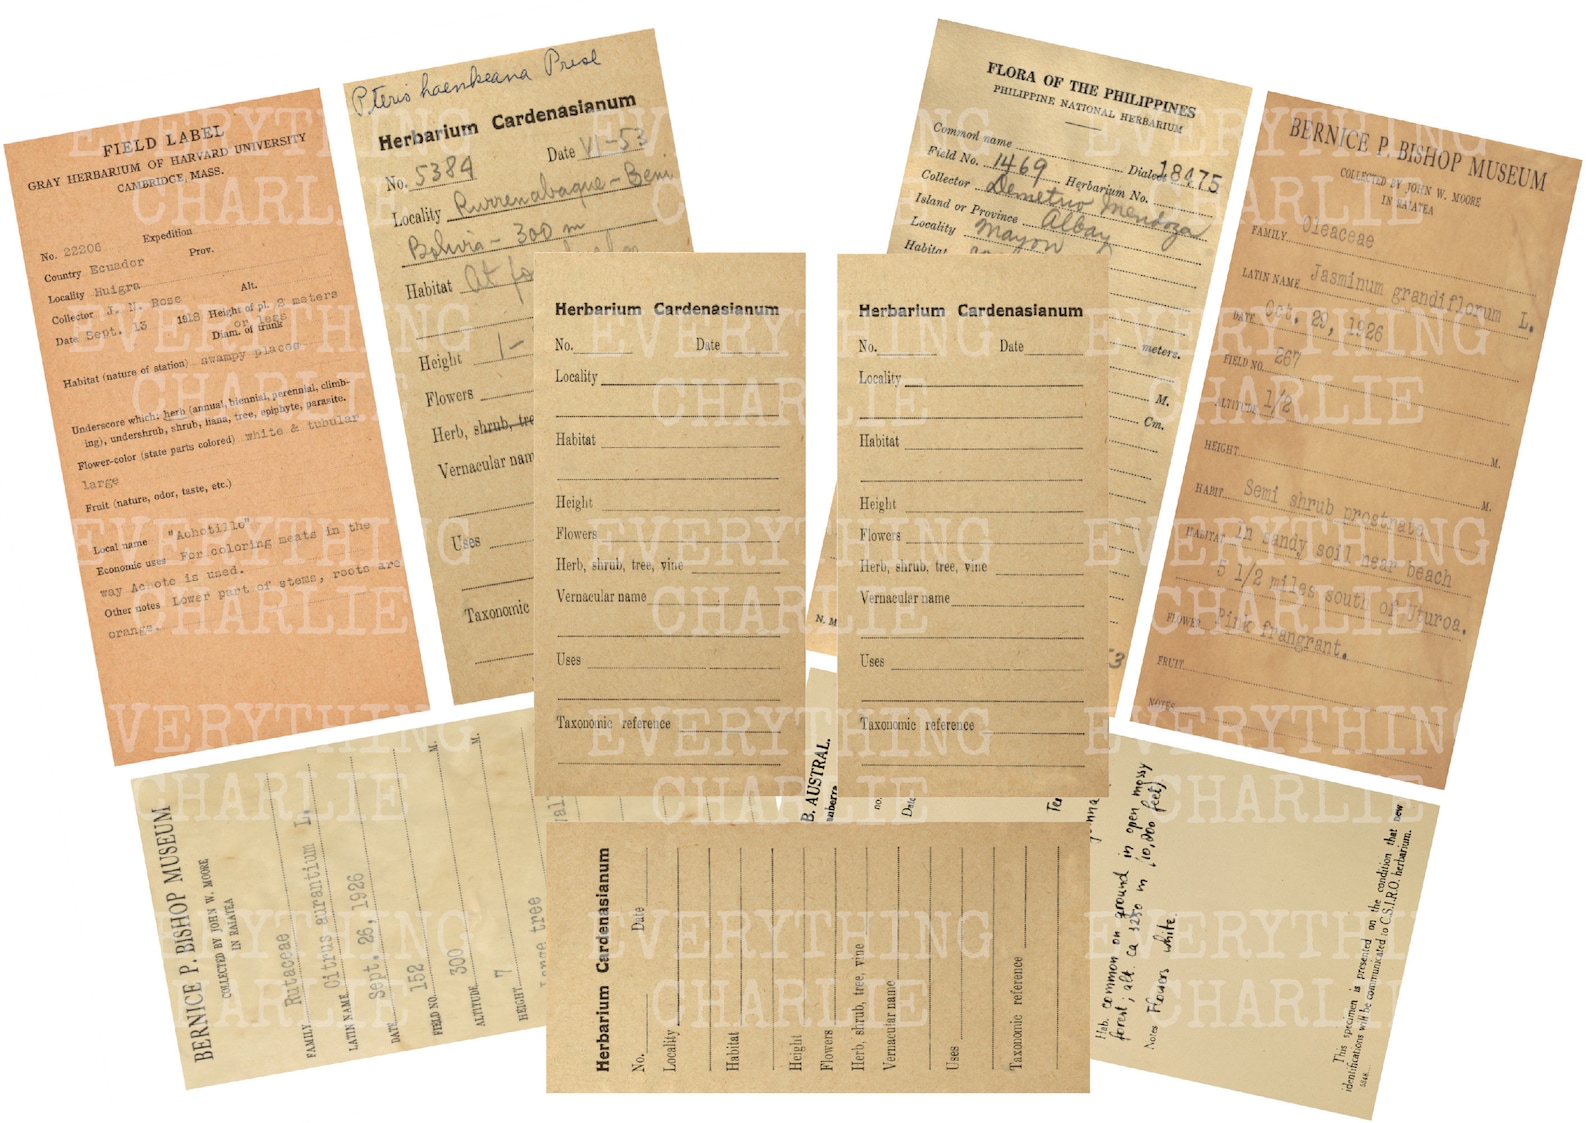 FIELD LABEL
GRAY HERBARIUM OF HARVARD UNIVERSITY
CAMBRIDGE, MASS.
No. 22206 Expedition
Country Ecuador Prov.
Locality Huigra
Collector J. N. Rose Alt.
Date Sept. 13 1918 Height of pl. 8 meters
or less
Diam. of trunk
Habitat (nature of station) swampy places
Underscore which: herb (annual, biennial, perennial, climb-
ing), undershrub, shrub, liana, tree, epiphyte, parasite.
Flower-color (state parts colored) white & tubular
large
Fruit (nature, odor, taste, etc.)
Local name "Achotillo"
Economic uses For coloring meats in the
way Achote is used.
Other notes Lower part of stems, roots are
orange.
Pteris haenkeana Presl
Herbarium Cardenasianum
No. 5384 Date VI-53
Locality Rurrenabaque - Beni
Bolivia - 300 m
Habitat At
Height 1-
Flowers
Herb, shrub, tre
Vernacular nam
Uses
Taxonomic
FLORA OF THE PHILIPPINES
PHILIPPINE NATIONAL HERBARIUM
Common name Dialect
Field No. 1469 Herbarium No. 18475
Collector Demetrio Mendoza
Island or Province Albay
Locality Mayon
Habitat
meters.
M.
Cm.
N. M
53
BERNICE P. BISHOP MUSEUM
COLLECTED BY JOHN W. MOORE
IN RAIATEA
FAMILY Oleaceae
LATIN NAME Jasminum grandiflorum L.
DATE Oct. 29, 1926
FIELD NO. 267
ALTITUDE 1/2
HEIGHT M.
M.
HABIT Semi shrub prostrate
HABITAT In sandy soil near beach
5 1/2 miles south of Uturoa.
FLOWER Pink frangrant.
FRUIT
NOTES
Herbarium Cardenasianum
No. Date
Locality
Habitat
Height
Flowers
Herb, shrub, tree, vine
Vernacular name
Uses
Taxonomic reference
Herbarium Cardenasianum
No. Date
Locality
Habitat
Height
Flowers
Herb, shrub, tree, vine
Vernacular name
Uses
Taxonomic reference
BERNICE P. BISHOP MUSEUM
COLLECTED BY JOHN W. MOORE
IN RAIATEA
FAMILY Rutaceae
LATIN NAME Citrus aurantium L.
DATE Sept. 26, 1926
FIELD NO. 152
ALTITUDE 300 M.
HEIGHT 7 M.
Large tree
Herbarium Cardenasianum
No. Date
Locality
Habitat
Height
Flowers
Herb, shrub, tree, vine
Vernacular name
Uses
Taxonomic reference
B. AUSTRAL.
anberra
no.
Date
Hab. common on ground in open mossy
forest; alt. ca 3250 m (10,200 feet)
Notes Flowers white.
This specimen is presented on the condition that new
identifications will be communicated to C.S.I.R.O. herbarium.
EVERYTHING
CHARLIE